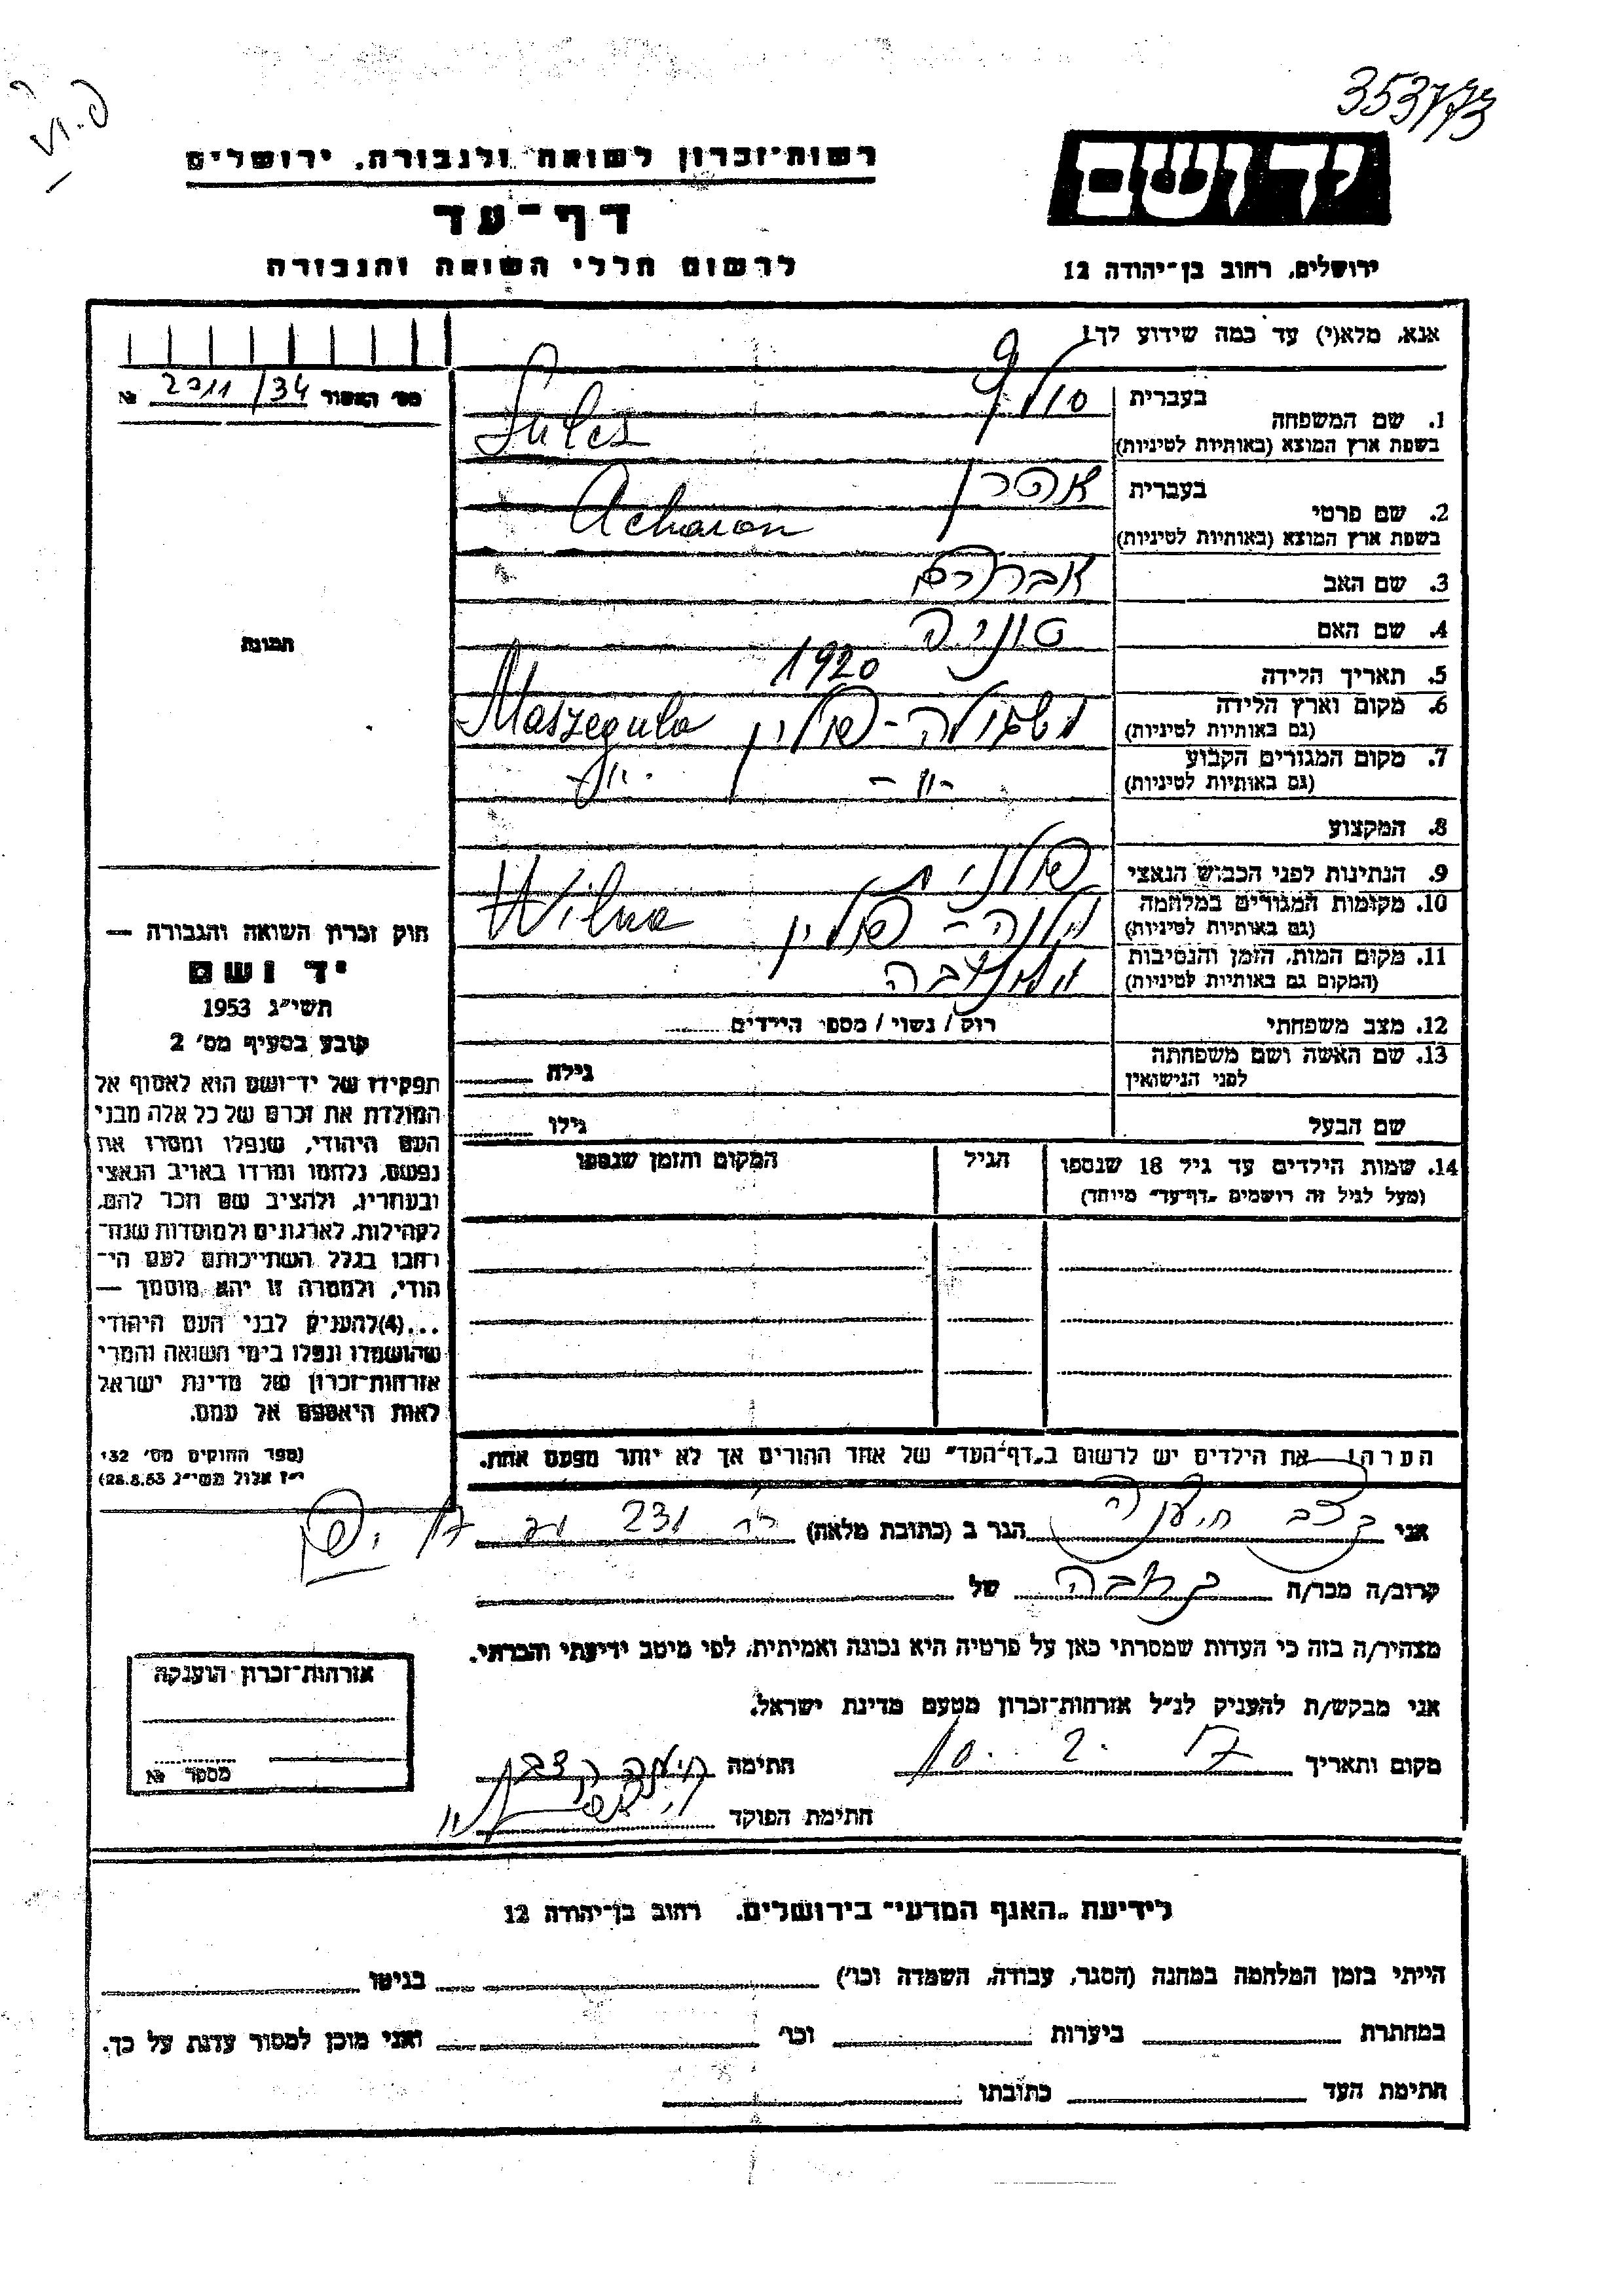 353773
יד ושם
רשות־זכרון לשואה ולגבורה, ירושלים
דף־עד
לרשום חללי השואה והגבורה
ירושלים, רחוב בן־יהודה 12
אנא, מלא(י) עד כמה שידוע לך!
מס' האסור 2011/34 №
1. שם המשפחה
בעברית
בשפת ארץ המוצא (באותיות לטיניות) Sulcz
2. שם פרטי
בעברית אהרן
בשפת ארץ המוצא (באותיות לטיניות) Acharon
3. שם האב אברהם
4. שם האם סוניה
5. תאריך הלידה 1920
6. מקום וארץ הלידה
(גם באותיות לטיניות) פולין Maszegula
7. מקום המגורים הקבוע
(גם באותיות לטיניות) -"- -"-
8. המקצוע
9. הנתינות לפני הכבוש הנאצי פולנית
10. מקומות המגורים במלחמה
(גם באותיות לטיניות) וילנה - פולין Wilna
11. מקום המות, הזמן והנסיבות
(המקום גם באותיות לטיניות)
12. מצב משפחתי רוק / נשוי / מספר הילדים
13. שם האשה ושם משפחתה
לפני הנישואין גילה
שם הבעל גילו
14. שמות הילדים עד גיל 18 שנספו הגיל המקום והזמן שנספו
(מעל לגיל זה רושמים „דף־עד" מיוחד)
הערה: את הילדים יש לרשום ב„דף־העד" של אחד ההורים אך לא יותר מפעם אחת.
תמונה
חוק זכרון השואה והגבורה —
יד ושם
תשי"ג 1953
קובע בסעיף מס' 2
תפקידו של יד־ושם הוא לאסוף אל
המולדת את זכרם של כל אלה מבני
העם היהודי, שנפלו ומסרו את
נפשם, נלחמו ומרדו באויב הנאצי
ובעוזריו, ולהציב שם וזכר להם,
לקהילות, לארגונים ולמוסדות שנח־
רבו בגלל השתייכותם לעם הי־
הודי, ולמטרה זו יהא מוסמך —
...(4)להעניק לבני העם היהודי
שהושמדו ונפלו בימי השואה והמרי
אזרחות־זכרון של מדינת ישראל
לאות היאספם אל עמם.
(ספר החוקים מס' 132
י"ז אלול תשי"ג 28.8.53)
אני הגר ב (כתובת מלאה) 231
קרוב/ה מכר/ה של
מצהיר/ה בזה כי העדות שמסרתי כאן על פרטיה היא נכונה ואמיתית, לפי מיטב ידיעתי והכרתי.
אני מבקש/ת להעניק לנ"ל אזרחות־זכרון מטעם מדינת ישראל.
מקום ותאריך חתימה
חתימת הפוקד
אזרחות־זכרון הוענקה
מספר №
לידיעת „האגף המדעי" בירושלים, רחוב בן־יהודה 12
הייתי בזמן המלחמה במחנה (הסגר, עבודה, השמדה וכו') בגיטו
במחתרת ביערות וכו' ואני מוכן למסור עדות על כך.
חתימת העד כתובתו